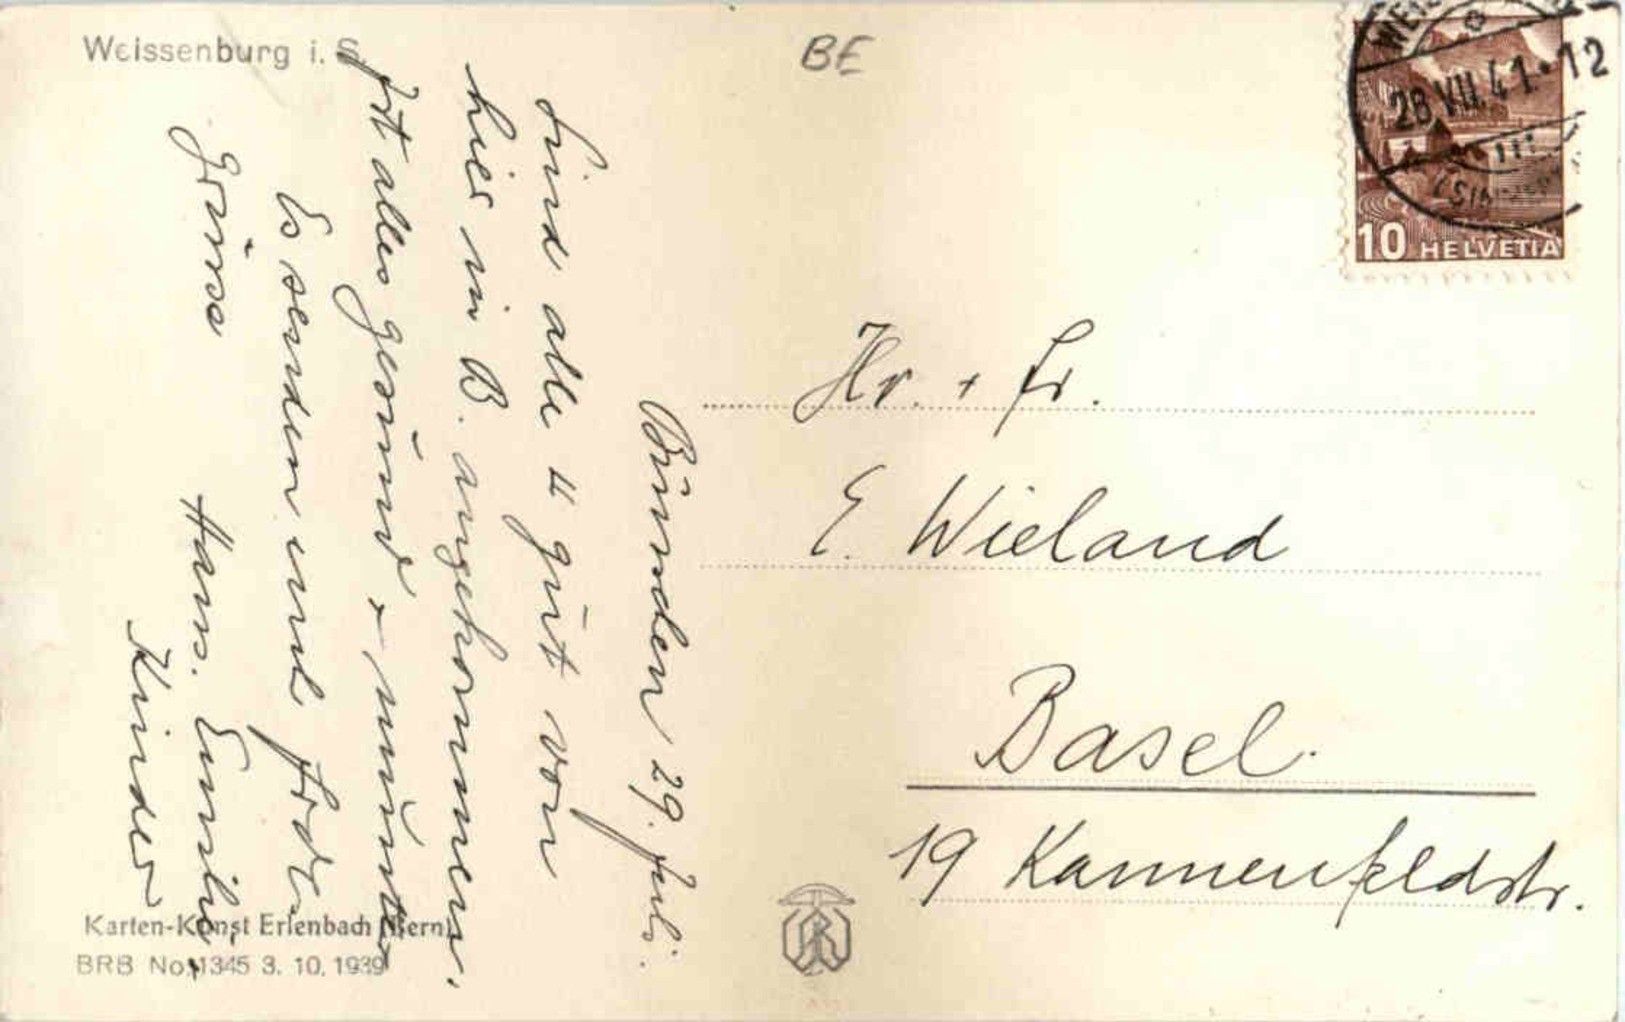 Weissenburg i. S.
BE
28.VII.41.-12
10 HELVETIA
Bünden 29. Juli.
Sind alle 4 gut von
hier in B. angekommen.
Ist alles gesund + munter
Es senden viel frohe
Grüsse
Hans. Emilie +
Kinder
Hr. + Fr.
E. Wieland
Basel.
19 Kannenfeldstr.
Karten-Kunst Erlenbach (Bern)
BRB No. 1345 3. 10. 1939